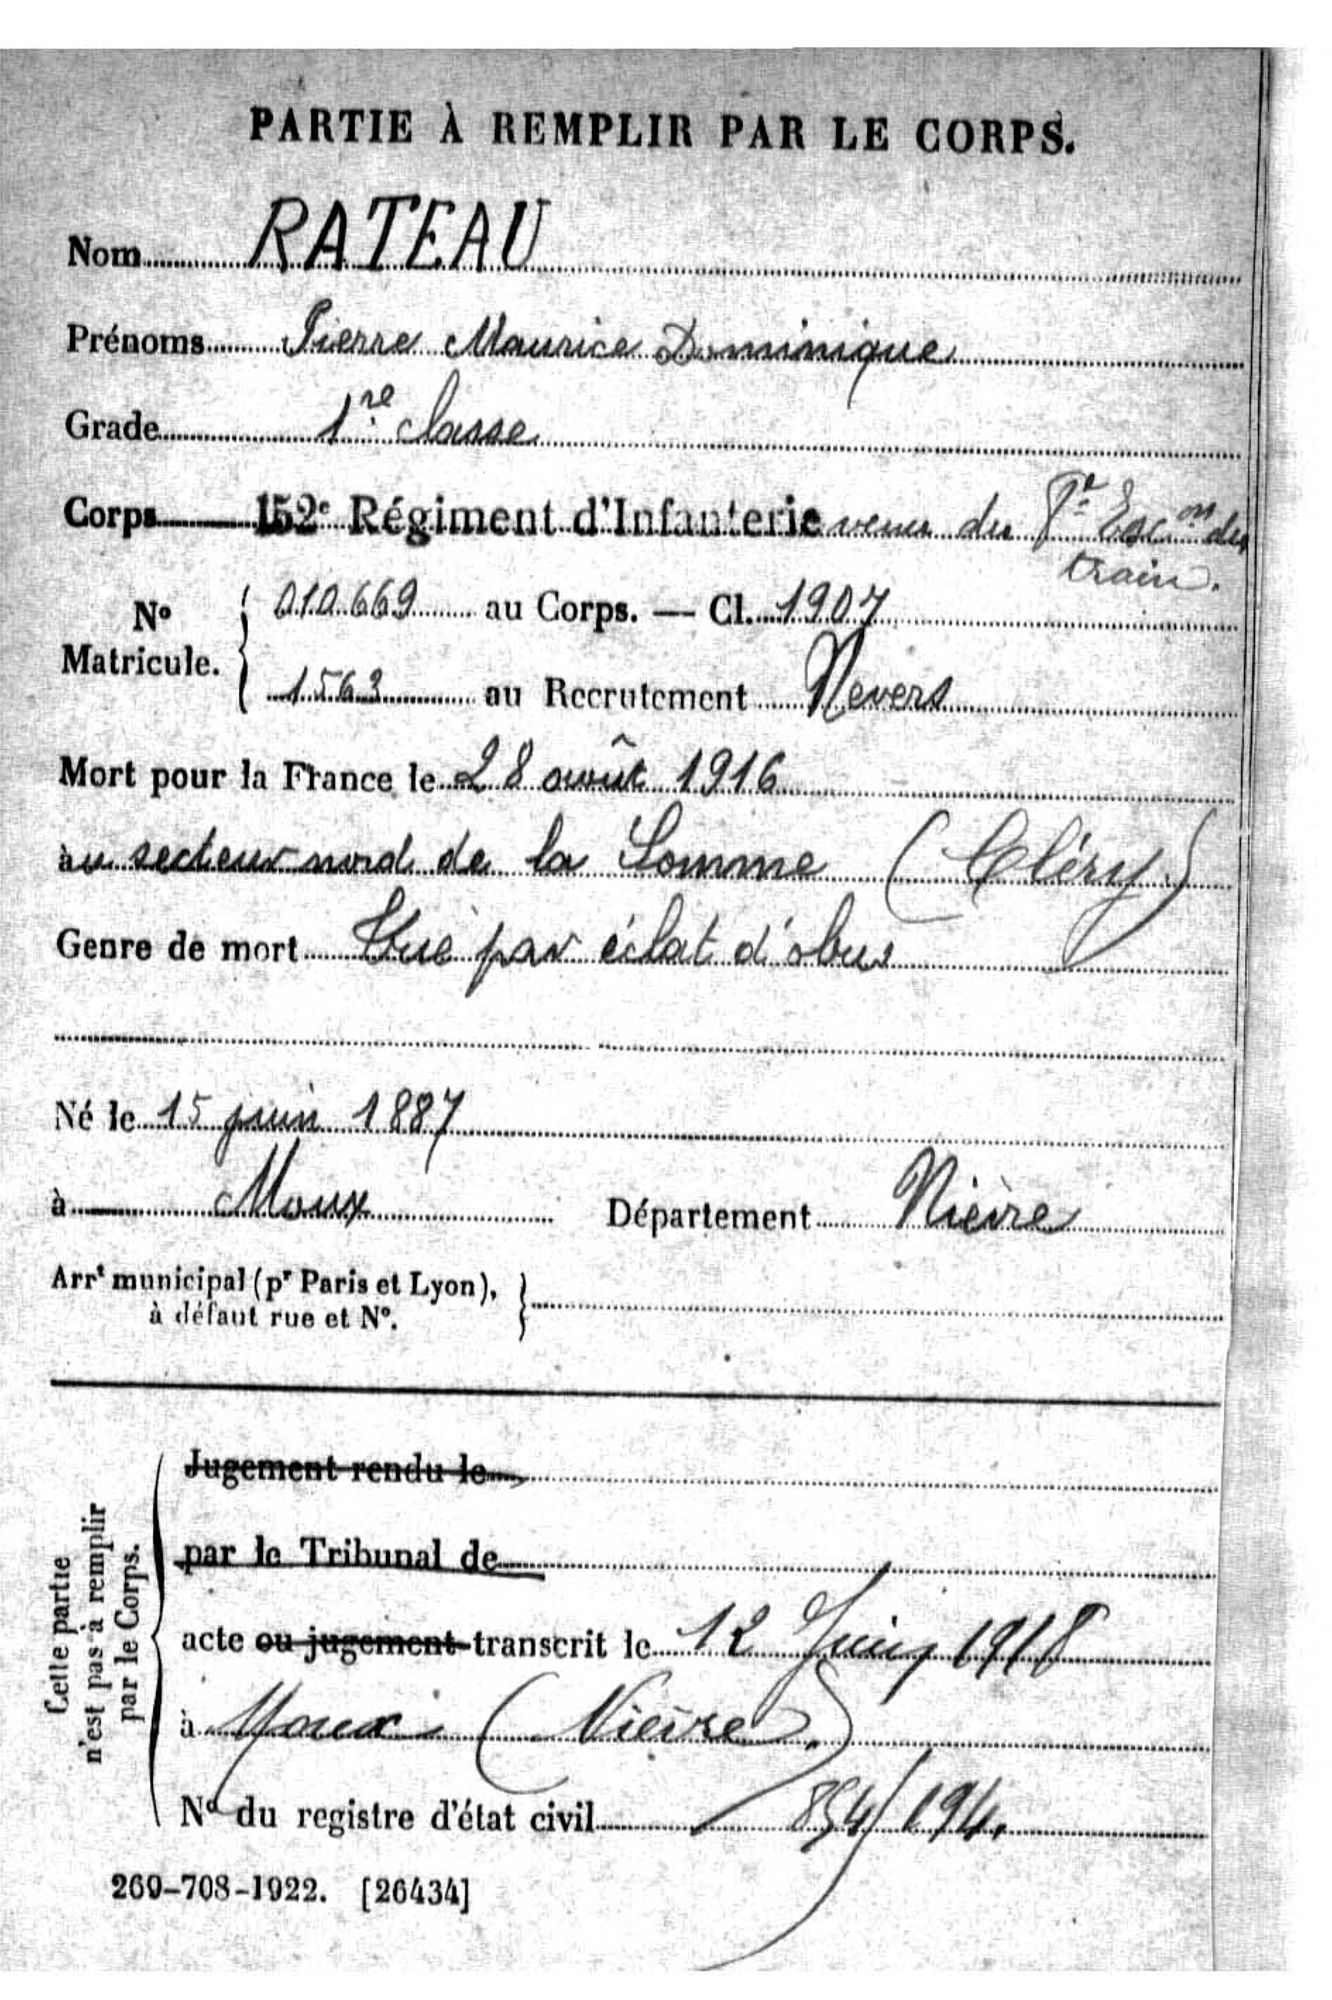 PARTIE À REMPLIR PAR LE CORPS.
Nom RATEAU
Prénoms Pierre Maurice Dominique
Grade 1re classe
Corps 152e Régiment d'Infanterie venu du Escon du
train.
No Matricule. 010669 au Corps. — Cl. 1907
1563 au Recrutement Nevers
Mort pour la France le 28 août 1916
àu secteur nord de la Somme (Cléry)
Genre de mort Tué par éclat d'obus
Né le 15 juin 1887
à Moux Département Nièvre
Arrt municipal (pr Paris et Lyon),
à défaut rue et No.
Jugement rendu le
par le Tribunal de
acte ou jugement transcrit le 12 Juin 1918
à Moux (Nièvre)
No du registre d'état civil 854/194.
Cette partie
n'est pas à remplir
par le Corps.
269-708-1922. [26434]